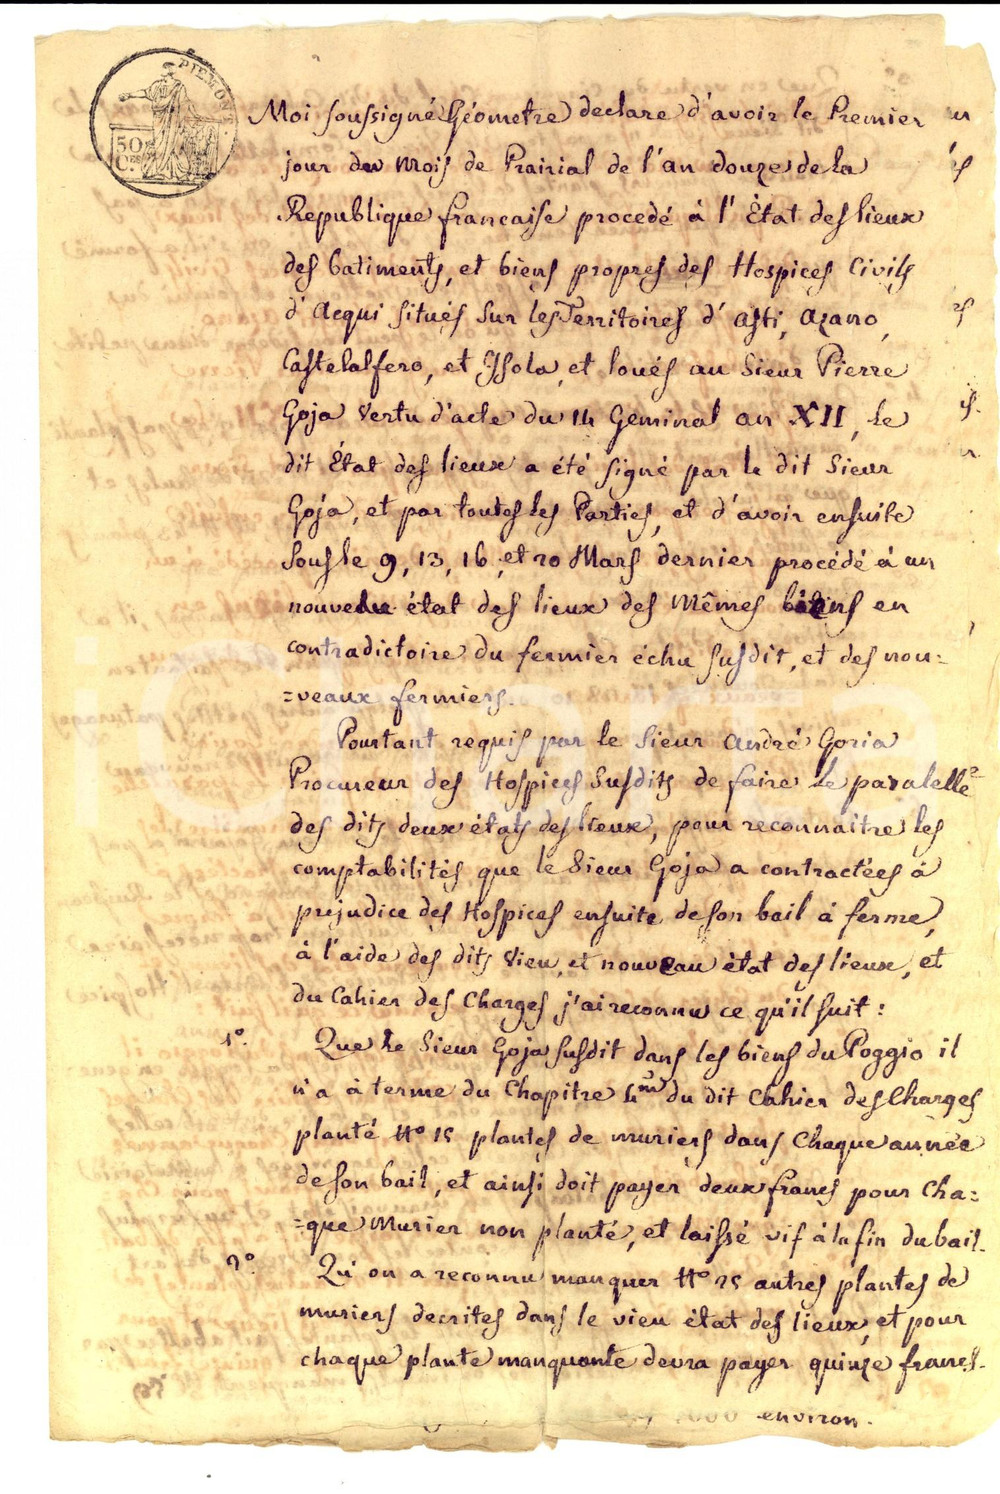 PIEMONT.
50
C.es
Moi soussigné Géometre declare d'avoir le Premier
jour du mois de Prairial de l'an douze de la
Republique francaise procedé à l'État des lieux
des batiments, et biens propres des Hospices Civils
d'Acqui situés sur les Territoires d'Asti, Azano,
Castelalfero, et Isola, et loués au Sieur Pierre
Goja vertu d'acte du 14 Geminal an XII, le
dit État des lieux a été signé par le dit Sieur
Goja, et par toutes les Parties, et d'avoir ensuite
sous le 9, 13, 16, et 20 Mars dernier procédé à un
nouveau état des lieux des mêmes biens en
contradictoire du fermier échu susdit, et des nou=
=veaux fermiers.
Pourtant requis par le Sieur André Goria
Procureur des Hospices susdits de faire le paralelle
des dits deux états des lieux, pour reconnaitre les
comptabilités que le Sieur Goja a contractées à
prejudice des Hospices ensuite de son bail à ferme,
à l'aide des dits vieu, et nouveau état des lieux, et
du Cahier des Charges j'ai reconnu ce qu'il suit :
1.° Que le Sieur Goja susdit dans les biens du Poggio il
n'a à terme du Chapitre 4.me du dit Cahier des Charges
planté N.° 15 plantes de muriers dans chaque année
de son bail, et ainsi doit payer deux francs pour cha=
=que murier non planté, et laissé vif à la fin du bail.
2.° Qu'on a reconnu manquer N.° 25 autres plantes de
muriers decrites dans le vieu état des lieux, et pour
chaque plante manquante devra payer quinze francs.
environ.